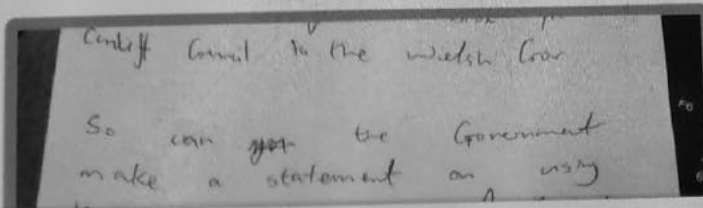 Cardiff Council to the Welsh Gov
So can the Government
make a statement on using